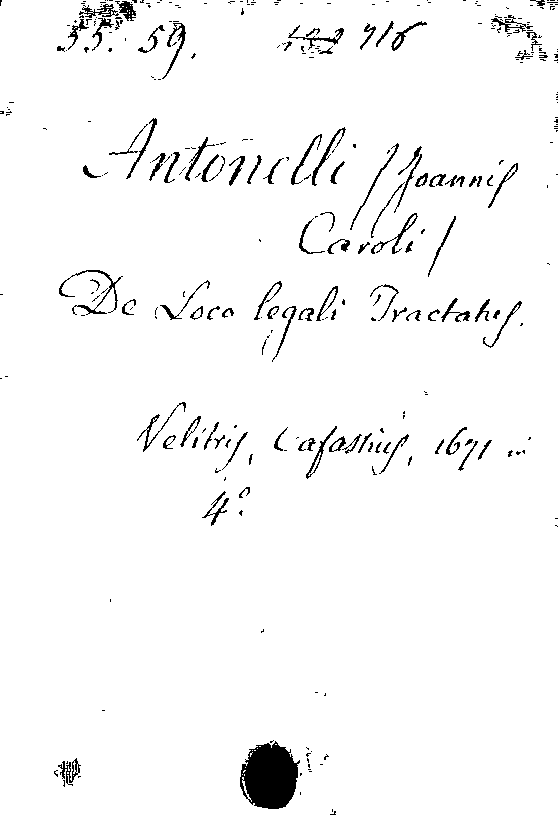 35. 59. 132 716
Antonelli /Joannis
Caroli/
De Loco legali Tractatus.
Velitris, Cafassius, 1671 in
4º.